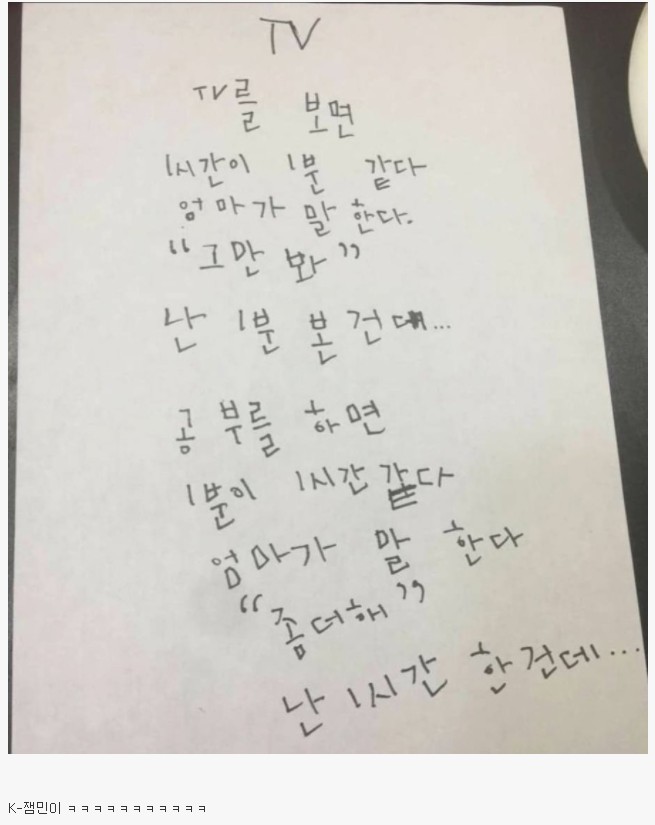 TV
TV를 보면
1시간이 1분 같다
엄마가 말 한다.
“그만 봐”
난 1분 본건데...
공부를 하면
1분이 1시간 같다
엄마가 말 한다
“좀더해”
난 1시간 한건데...
K-잼민이 ㅋㅋㅋㅋㅋㅋㅋㅋㅋㅋㅋ